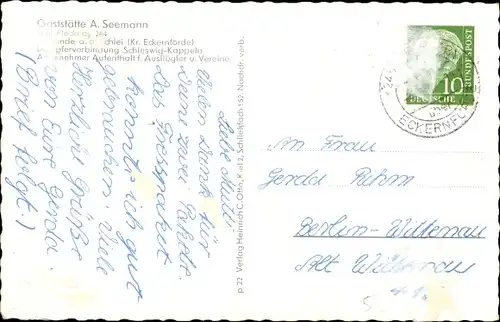 Gaststätte A. Seemann
Sieseby a. d. Schlei (Kr. Eckernförde)
Dampferverbindung Schleswig-Kappeln
Angenehmer Aufenthalt f. Ausflügler u. Vereine
Liebe Mutti!
Vielen Dank für
Deine zwei Pakete.
Das Fresspaket
konnte ich gut
gebrauchen. Viele
Herzliche Grüße
von Eure Gerda.
(Brief folgt.)
p. 22 Verlag Heinrich C. Otto, Kiel 2, Schließfach 152 Nachdr. verb.
DEUTSCHE
BUNDESPOST
10
ECKERNFÖ
An Frau
Gerda Rihm
Berlin-Wittenau
Alt Wittenau
41.